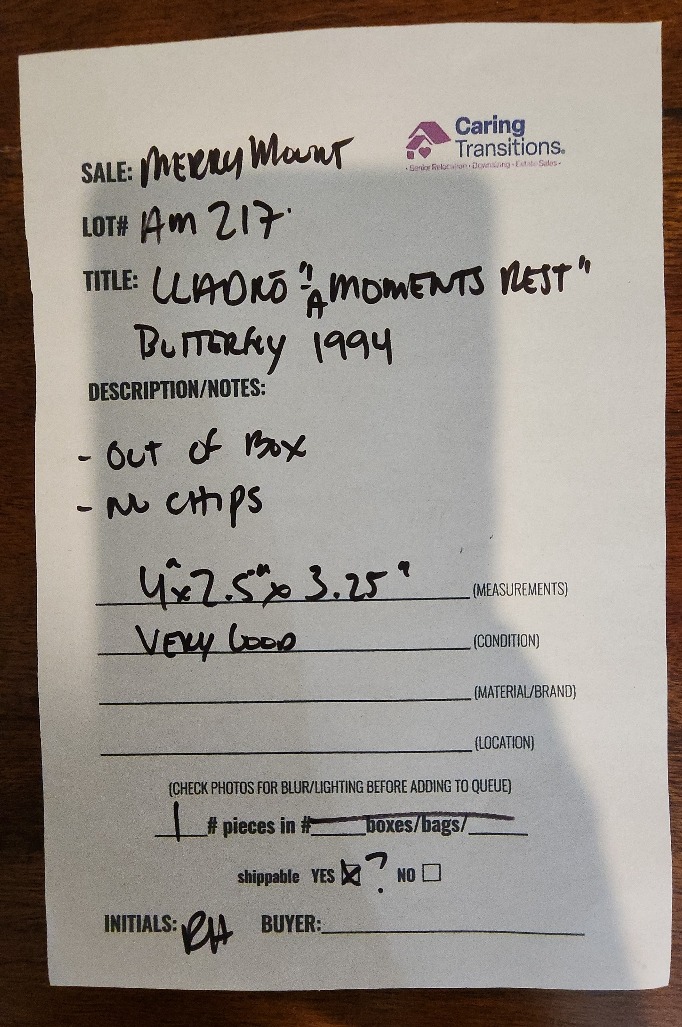 Caring
Transitions.
• Senior Relocation • Downsizing • Estate Sales •
SALE: MERRY MOUNT
LOT# AM 217
TITLE: LLADRO "A MOMENTS REST"
BUTTERFLY 1994
DESCRIPTION/NOTES:
- OUT OF BOX
- NO CHIPS
4"x2.5"x 3.25" (MEASUREMENTS)
VERY GOOD (CONDITION)
(MATERIAL/BRAND)
(LOCATION)
(CHECK PHOTOS FOR BLUR/LIGHTING BEFORE ADDING TO QUEUE)
1 # pieces in # boxes/bags/
shippable YES ☒? NO ☐
INITIALS: RH BUYER: